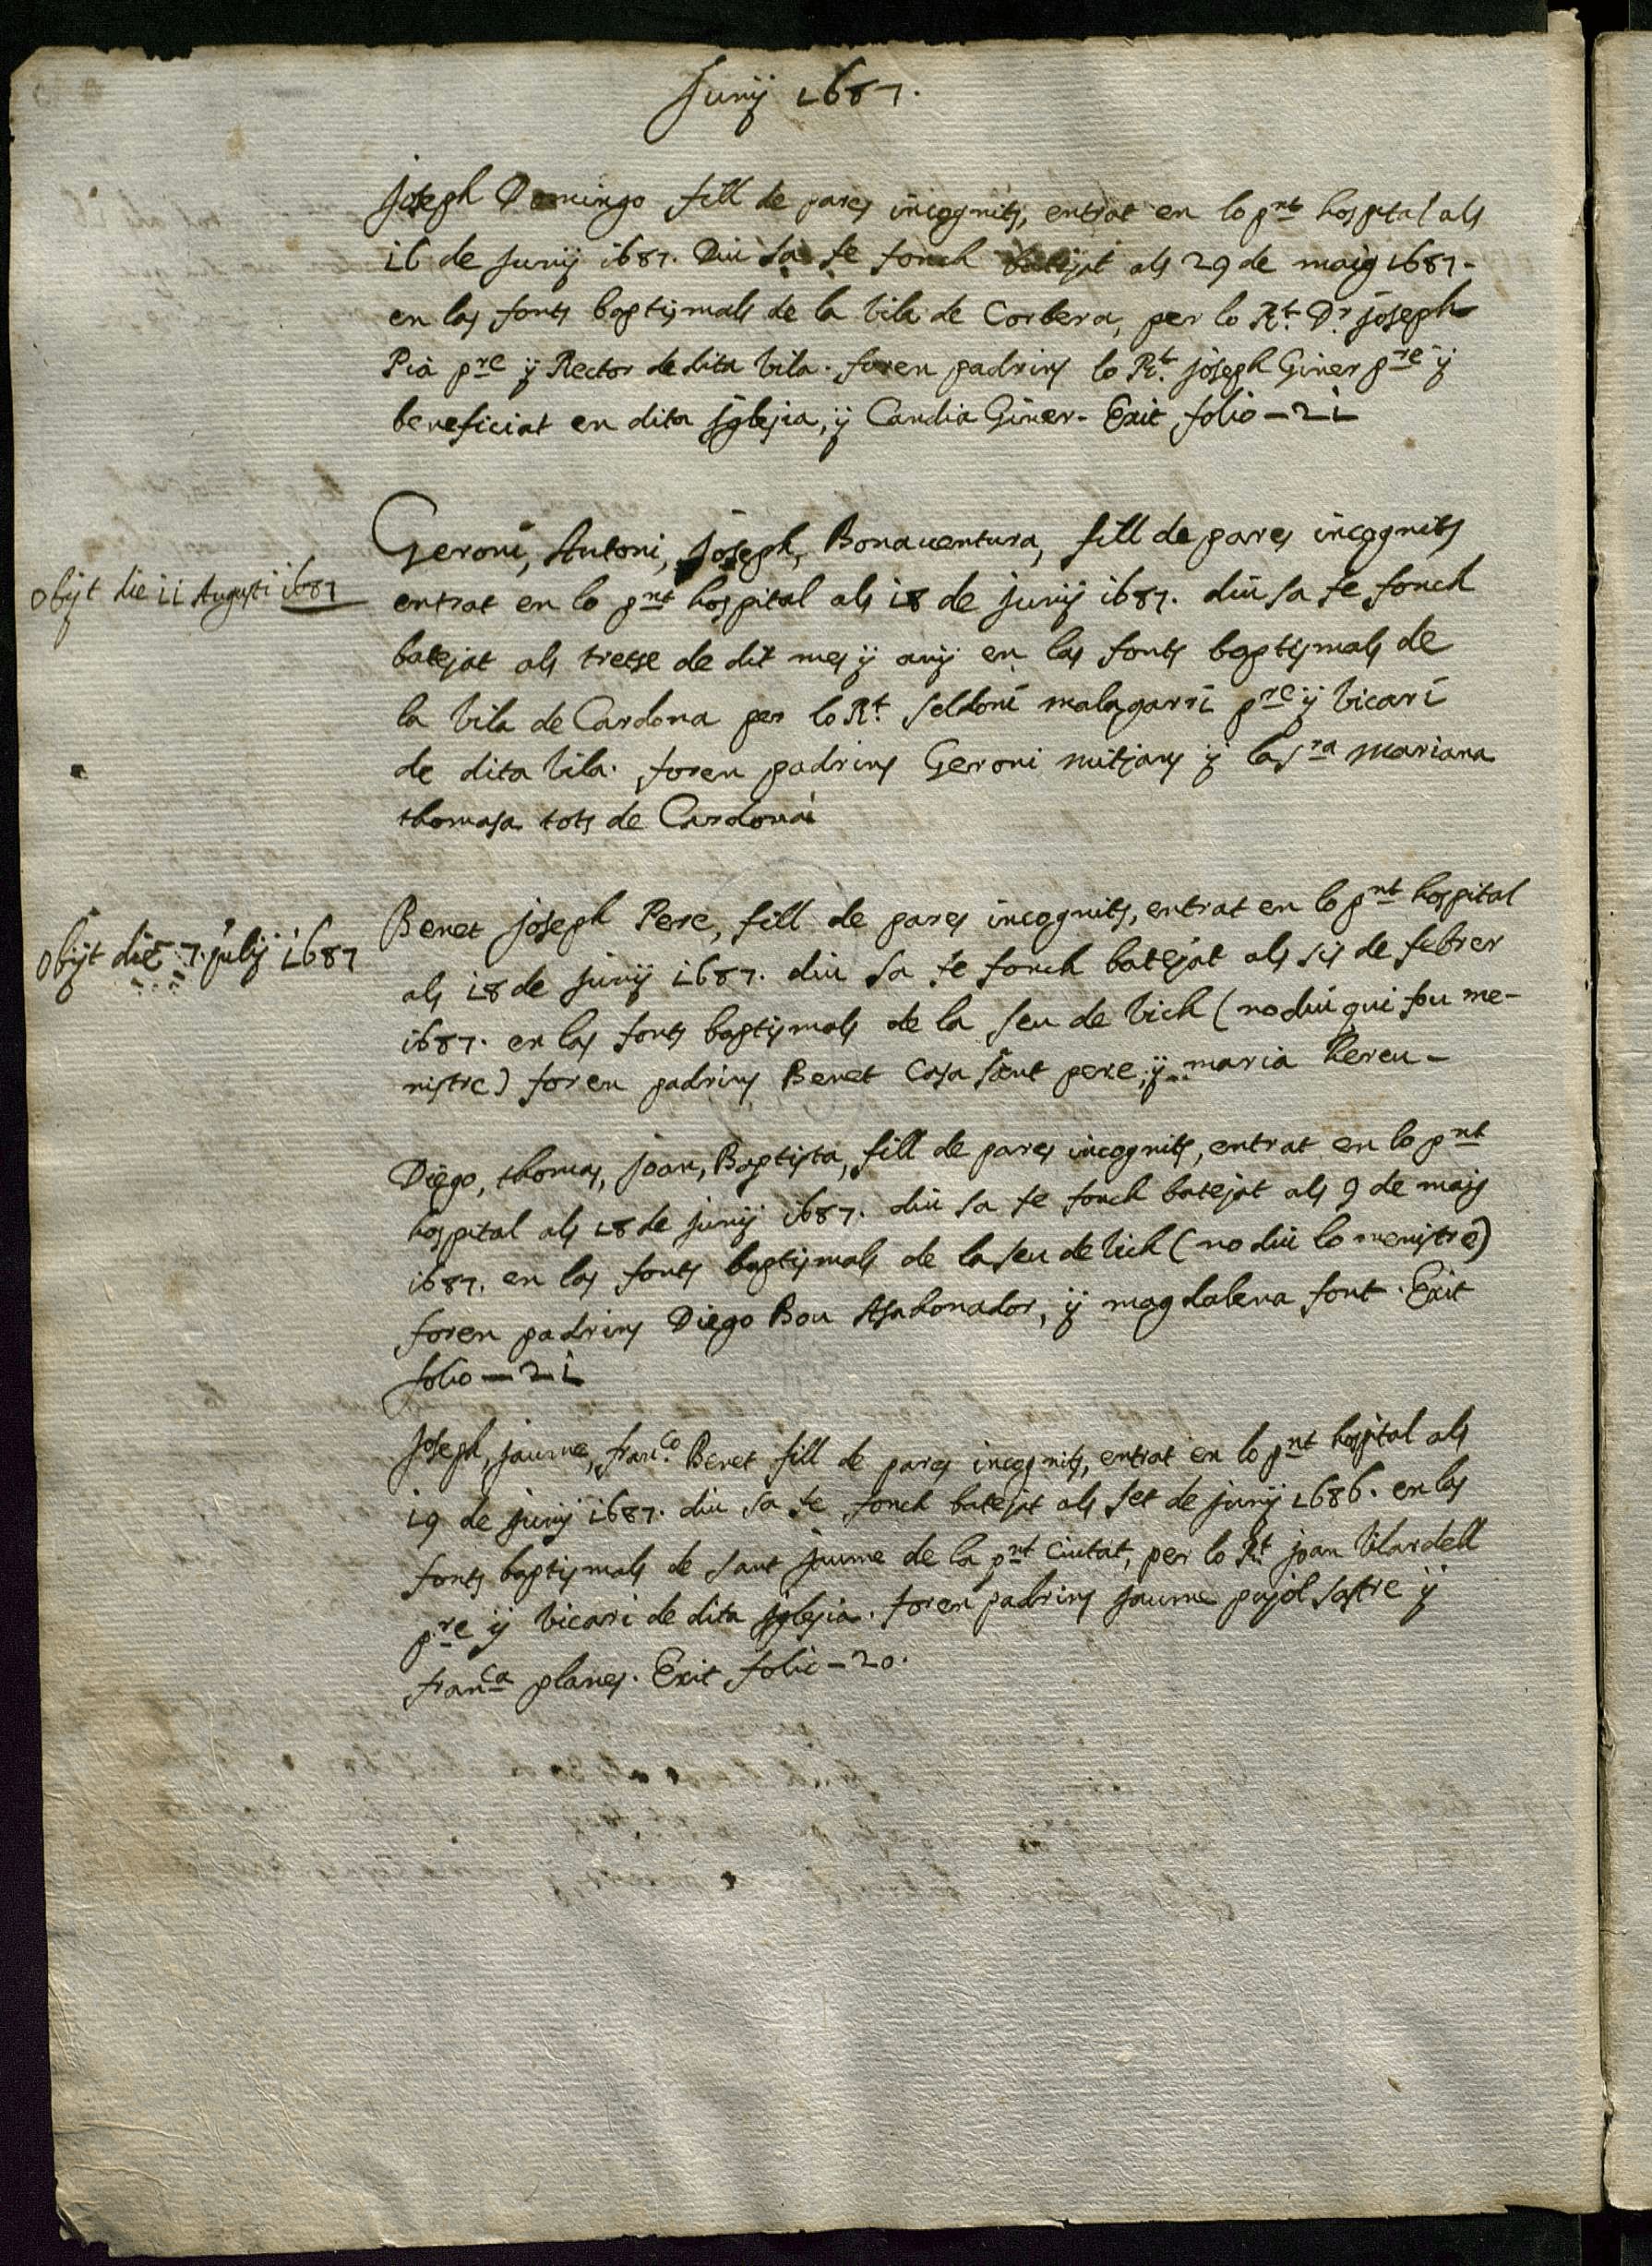 Junÿ 1687.
Joseph Domingo fill de pares incognits, entrat en lo pnt hospital als
16 de Junÿ 1687. Diu sa fe fonch batejat als 29 de maig 1687-
en las fonts baptismals de la Vila de Corbera, per lo Rt. Dr. Joseph
Pia pre ÿ Rector de dita Vila. foren padrins lo Rt. Joseph Giner pre ÿ
beneficiat en dita Iglesia, ÿ Candia Giner- Exit folio - 21
Geroni, Antoni, Joseph, Bonaventura, fill de pares incognits
Obijt die 11 Augusti 1687
entrat en lo pnt hospital als 18 de junÿ 1687. diu sa fe fonch
batejat als tretse de dit mes ÿ anÿ en las fonts baptismals de
la Vila de Cardona per lo Rt. Seldoni malagarri pre ÿ Vicari
de dita Vila. foren padrins Geroni mitjans ÿ la Sra Mariana
thomasa tots de Cardona
Benet Joseph Pere, fill de pares incognits, entrat en lo pnt hospital
Obijt die 7. julij 1687
als 18 de junÿ 1687. diu sa fe fonch batejat als sis de febrer
1687. en las fonts baptismals de la Seu de Vich (no diu qui fou me-
nistre) foren padrins Benet Casa sant pere, ÿ maria Hereu-
Diego, thomas, joan, Baptista, fill de pares incognits, entrat en lo pnt
hospital als 18 de junÿ 1687. diu sa fe fonch batejat als 9 de maig
1687. en las fonts baptismals de la Seu de Vich (no diu lo menistre)
foren padrins Diego Bou Asahonador, ÿ magdalena font. Exit
folio - 21
Joseph, jaume, franco. Benet fill de pares incognits, entrat en lo pnt hospital als
19 de junÿ 1687. diu sa fe fonch batejat als set de junÿ 1686. en las
fonts baptismals de sant jaume de la pnt Ciutat, per lo Rt joan Vilardell
pre ÿ Vicari de dita Iglesia. foren padrins jaume pujol sastre ÿ
franca planes. Exit folio - 20.